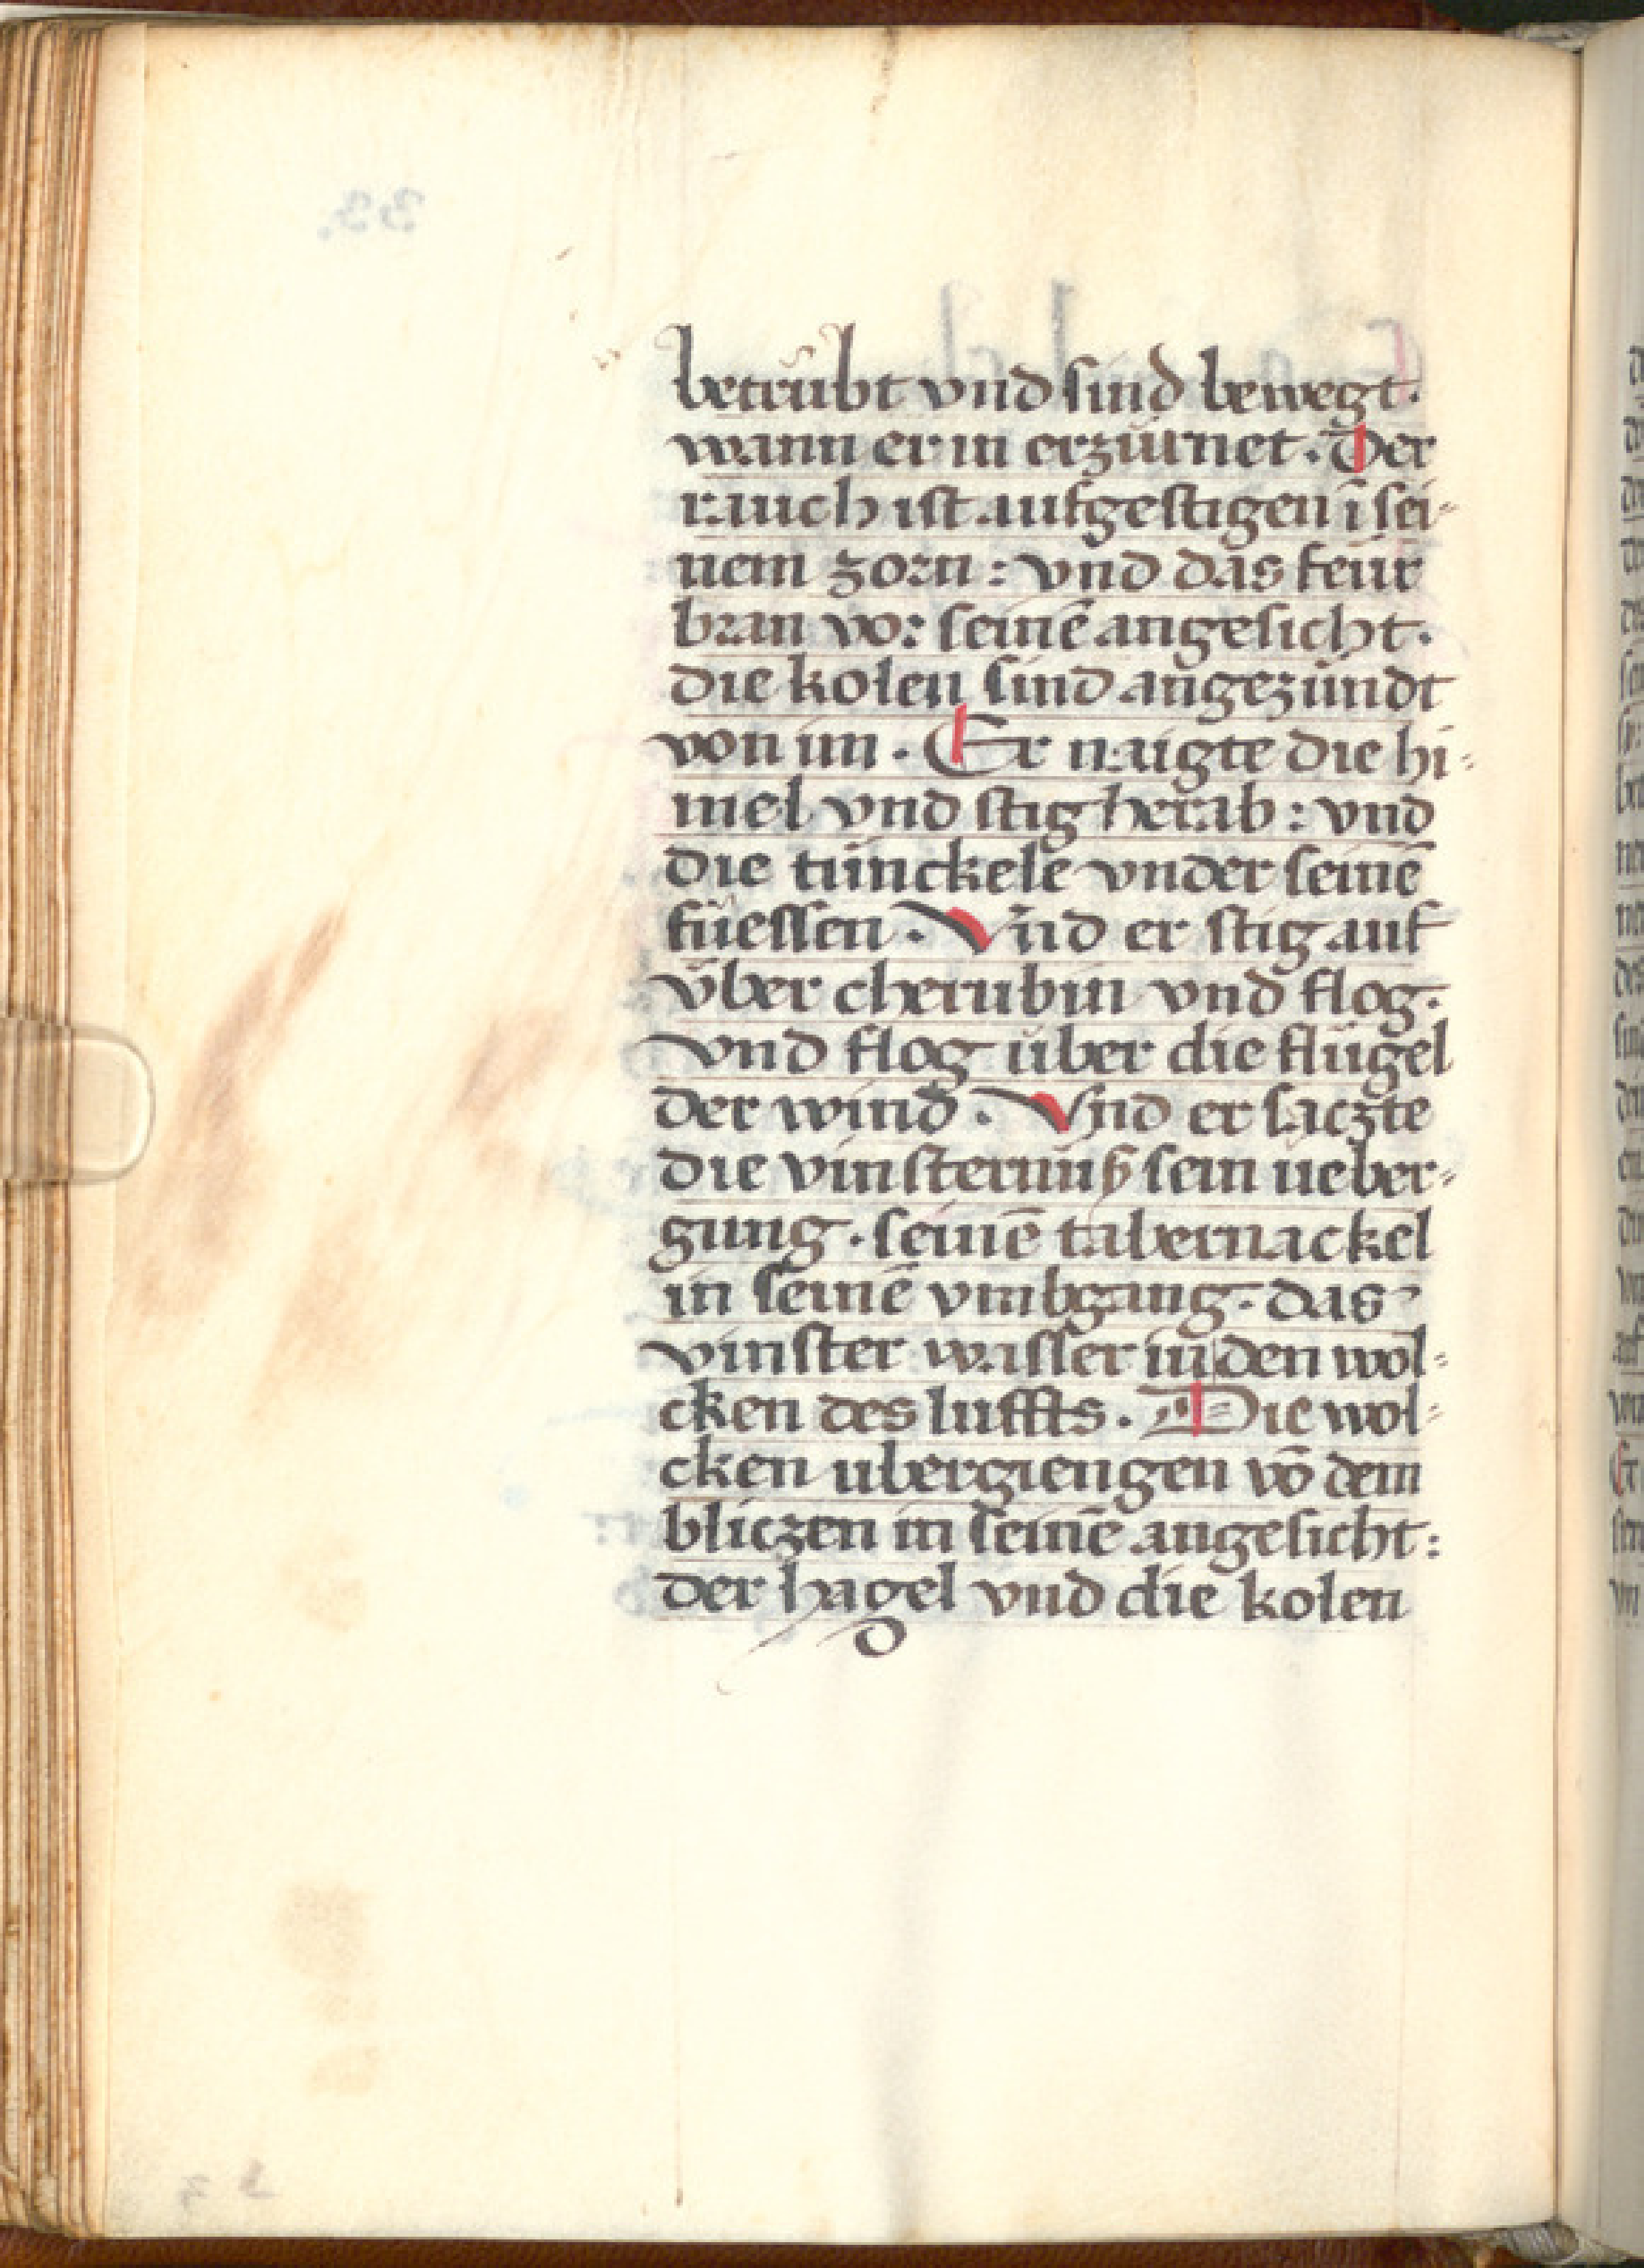 betrübt vnd sind bewegt.
wann er in erzürnet. Der
rauch ist aufgestigen ī sei-
nem zorn: vnd das feür
bran vor seinē angesicht.
die kolen sind angezündt
von im. Er naigte die hi-
mel vnd stig herab: vnd
die tünckele vnder seinē
füessen. Vnd er stig auf
über cherubin vnd flog.
vnd flog über die flügel
der wind. Vnd er saczte
die vinsternuß sein ueber-
gung. seinē tabernackel
in seinē vmbgang. das
vinster wasser in den wol-
cken des luffts. Die wol-
cken ubergiengen vō dem
bliczen in seinē angesicht:
der hagel vnd die kolen